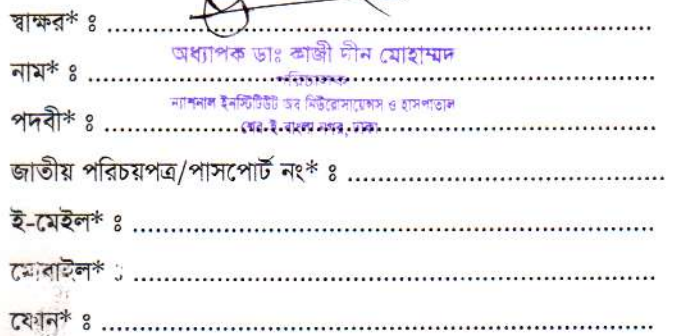 স্বাক্ষর* ঃ ........................................................
অধ্যাপক ডাঃ কাজী দীন মোহাম্মদ
নাম* ঃ ........................................................
পরিচালক
ন্যাশনাল ইনস্টিটিউট অব নিউরোসায়েন্সেস ও হাসপাতাল
পদবী* ঃ ........................................................
শের-ই-বাংলা নগর, ঢাকা
জাতীয় পরিচয়পত্র/পাসপোর্ট নং* ঃ ................................
ই-মেইল* ঃ ........................................................
মোবাইল* ঃ ........................................................
ফোন* ঃ ........................................................